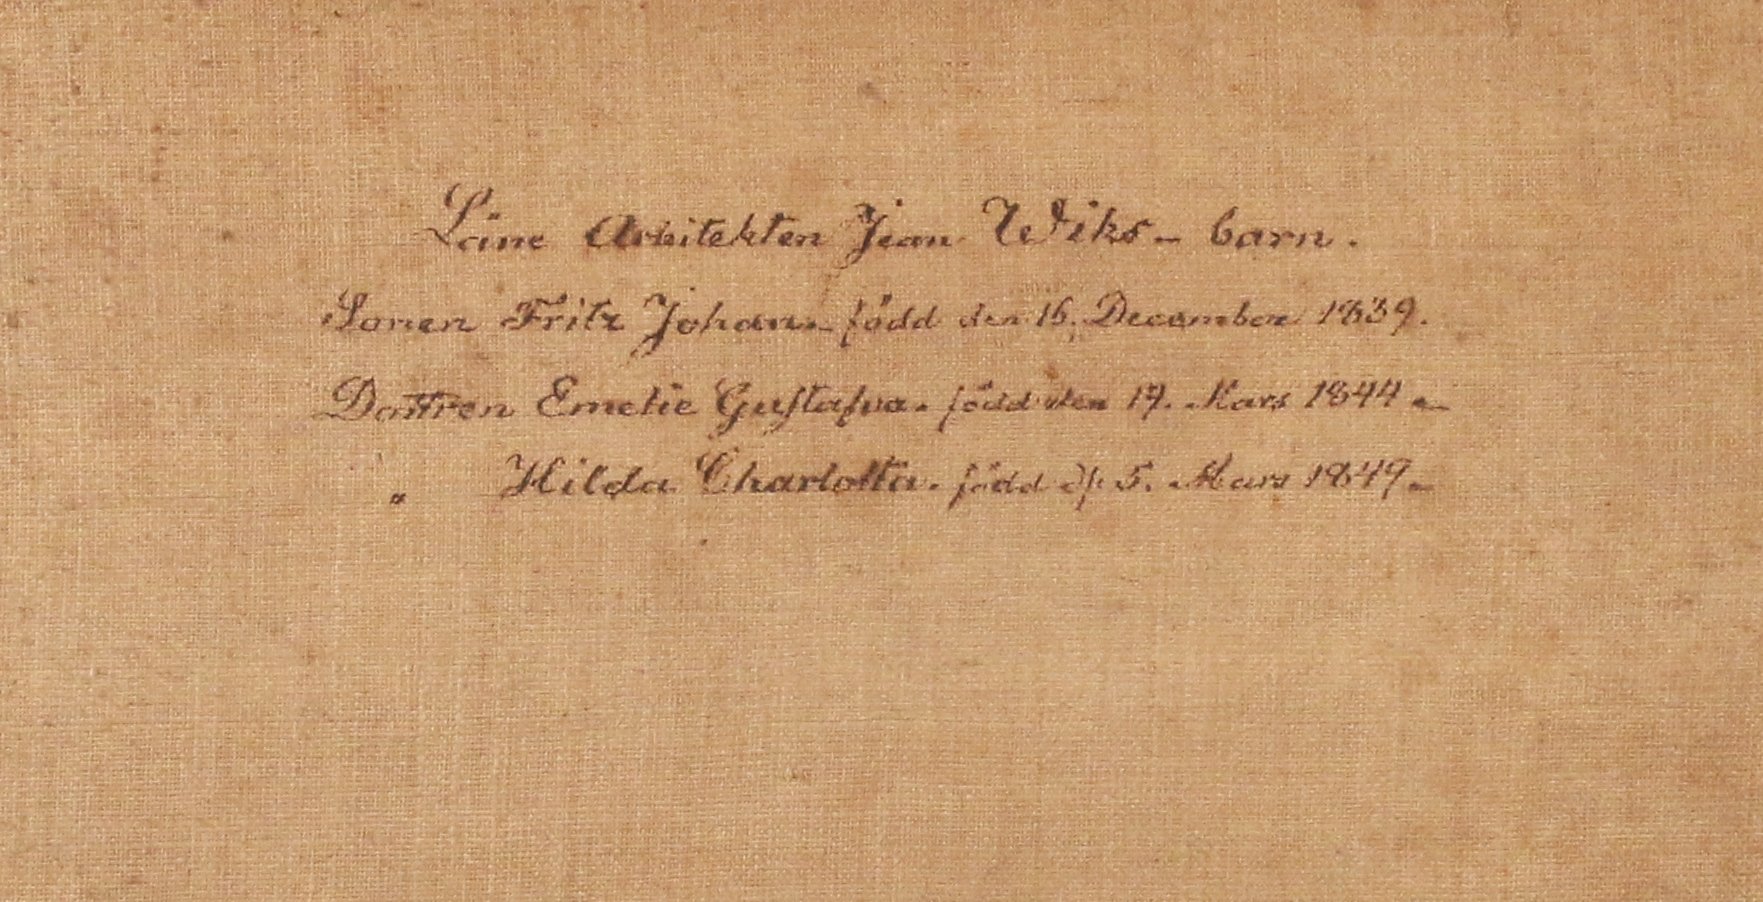 Läne Arkitekten Jean Wiks - barn.
Sonen Fritz Johan - född den 16. December 1839.
Dottren Emelie Gustafva. född den 17. Mars 1844 -
" Hilda Charlotta. född d. 5. Mars 1849 -